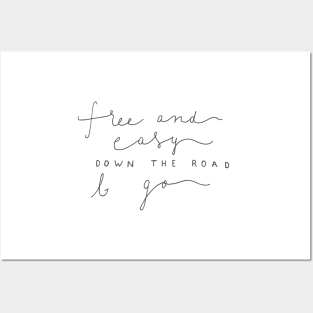 free and
easy
DOWN THE ROAD
I go